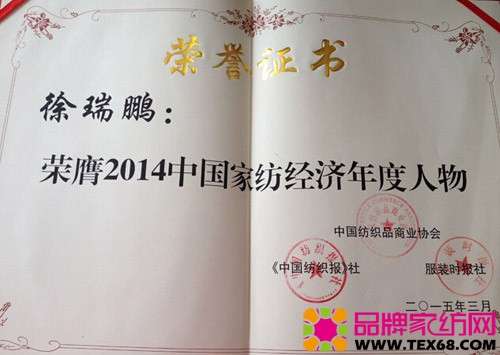 荣誉证书
徐瑞鹏：
荣膺2014中国家纺经济年度人物
中国纺织品商业协会
《中国纺织报》社 服装时报社
二〇一五年三月
品牌家纺网
WWW.TEX68.COM